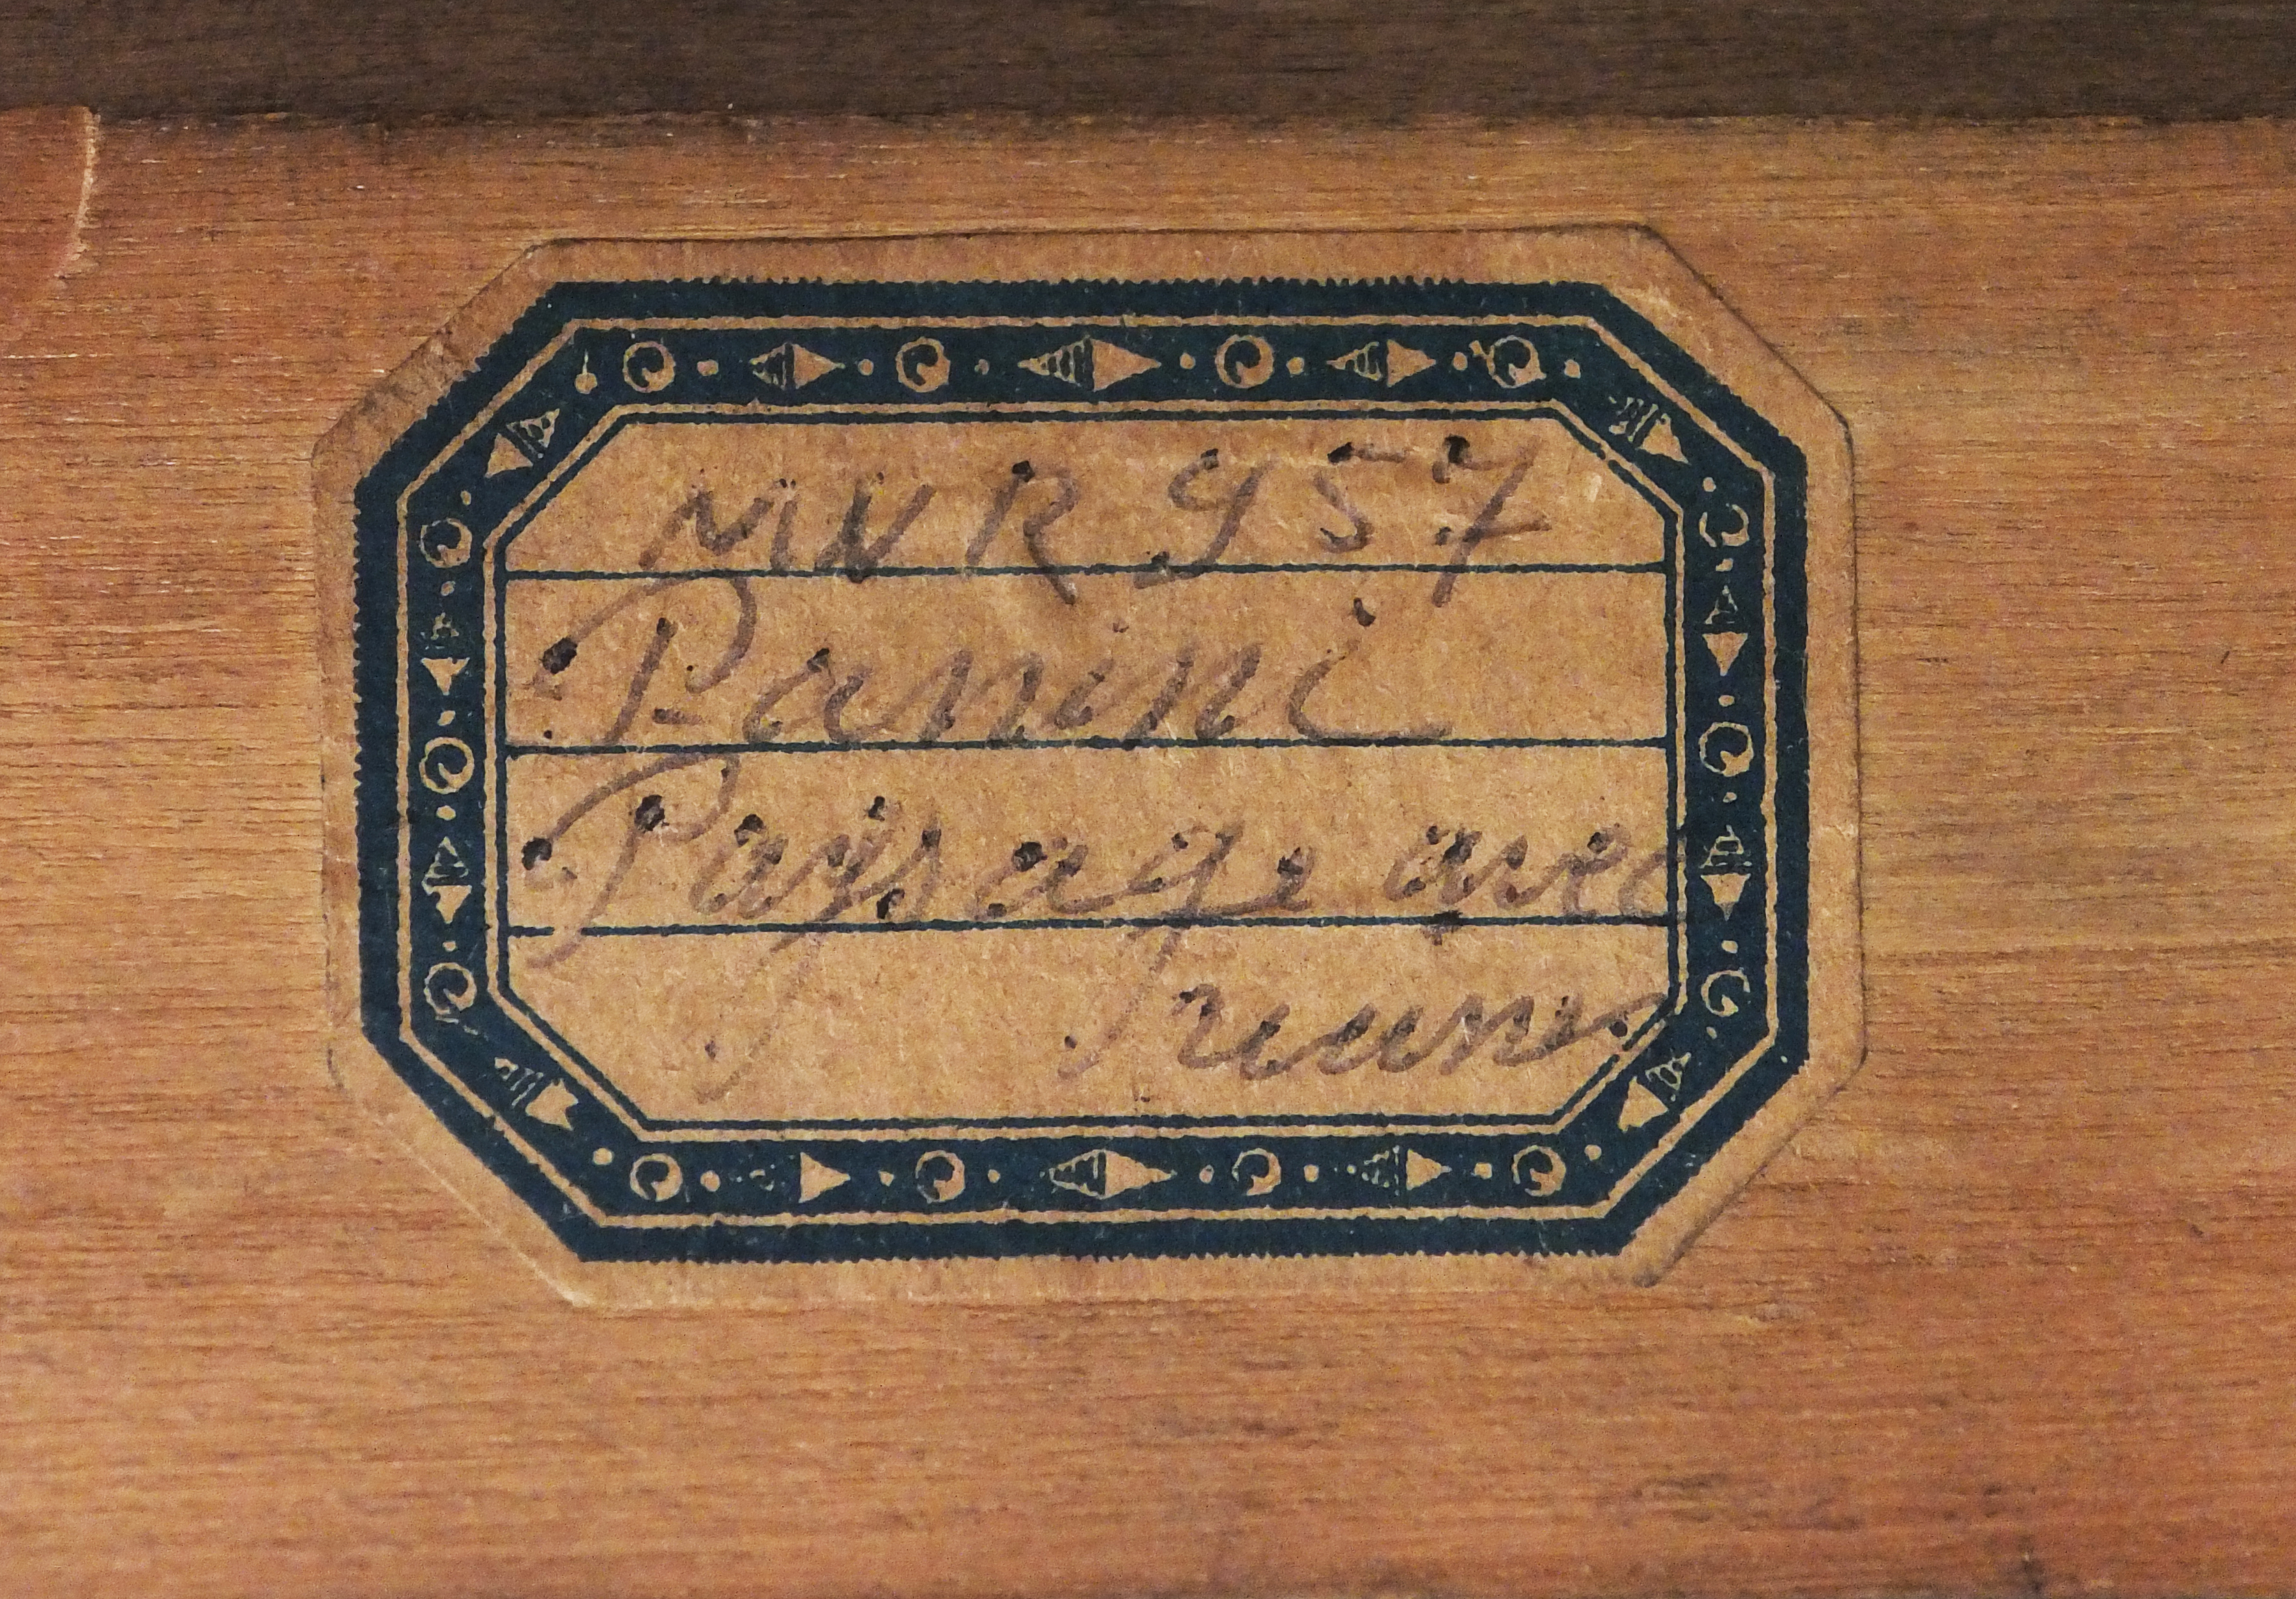 MNR 957
Panini
Paysage avec